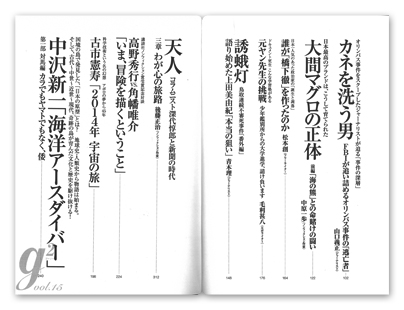 オリンパス事件をスクープしたジャーナリストが追う、「事件の深層」
カネを洗う男
FBIが追い詰めるオリンパス事件の「逃亡者」
山口義正
大間マグロの正体
前編「海の熊」との命賭けの闘い
中原一歩
誰が「橋下徹」を作ったのか
松本創
元ヤン先生の挑戦
毛利甚八
誘蛾灯
鳥取連続不審死事件〈番外編〉
語り始めた上田美由紀「本当の狙い」
青木理
天人
「コラムニスト」深代惇郎と新聞の時代
三章 わが心の旅路
後藤正治
高野秀行×角幡唯介
「いま、冒険を描くということ」
古市憲寿「2014年 宇宙の旅」
中沢新一「海洋アースダイバー」
第一部 対馬編 カラでもヤマトでもなく、倭
g2
vol.15